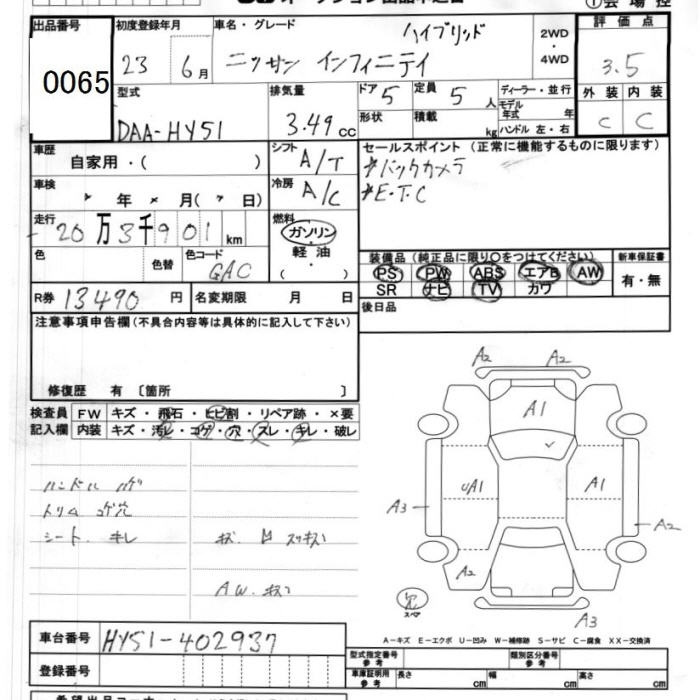 出品番号 初度登録年月 車名・グレード 2WD・4WD 評価点
0065 23 6月 ニッサン インフィニティ ハイブリッド 3.5
型式 排気量 ドア 5 定員 5人 ディーラー・並行 外装 内装
DAA-HY51 3.49cc 形状 積載 kg モデル年式 年 C C
ハンドル 左・右
車歴 自家用・( ) シフト A/T セールスポイント (正常に機能するものに限ります)
*バックカメラ
車検 年 月( 日) 冷房 A/C *E・T・C
走行 20万3千901km 燃料 ガソリン・軽油・( )
色 色替 色コード GAC 装備品(純正品に限り○をつけてください) 新車保証書
PS PW ABS エアB AW 有・無
R券 13490円 名変期限 月 日 SR ナビ TV カワ
注意事項申告欄(不具合内容等は具体的に記入して下さい) 後日品
修復歴 有 〔箇所 〕
検査員 FW キズ・飛石・ヒビ割・リペア跡・×要
記入欄 内装 キズ・汚レ・コゲ・穴・スレ・キレ・破レ
A2 A2
A1
ハンドル ハゲ
UA1 A1
トリム コゲ穴
A3 A2
シート キレ
A2
A.W.キズ
スペア
A3
車台番号 HY51-402937 A-キズ E-エクボ U-凹み W-補修跡 S-サビ C-腐食 XX-交換済
型式指定番号 参考 類別区分番号 参考
登録番号 車庫証明用 参考 長さ cm 幅 cm 高さ cm